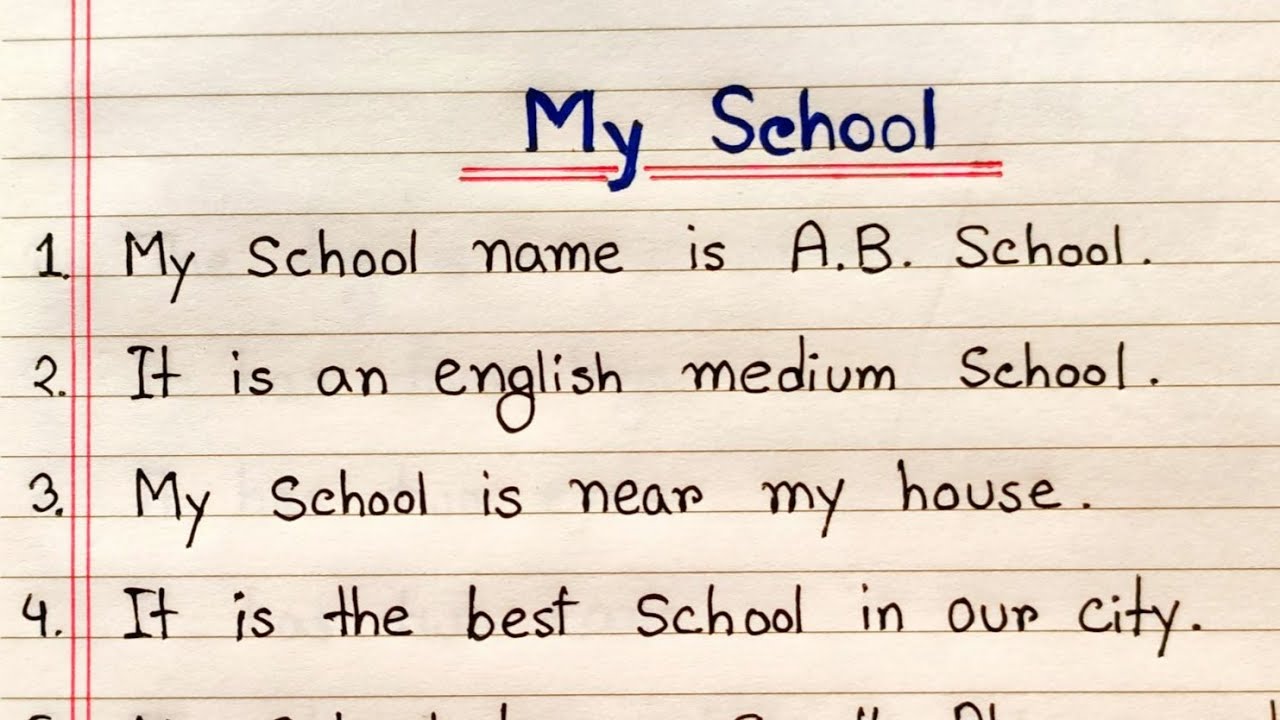 My School
1. My School name is A.B. School.
2. It is an english medium School.
3. My School is near my house.
4. It is the best School in our city.